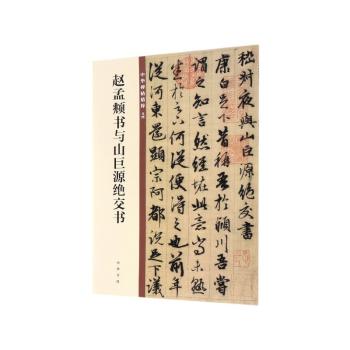 赵孟頫书与山巨源绝交书
中华碑帖精粹
中华书局
嵇叔夜與山巨源絕交書
康白足下昔稱吾於潁川吾嘗
謂之知言然經怪此意尚未熟
於何從便得之也前年
從河東還顯宗阿都說足下議